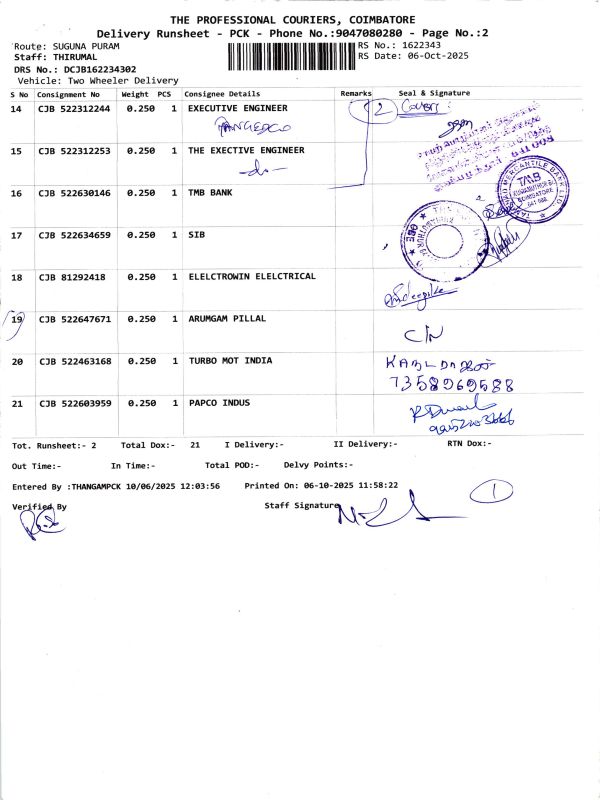 THE PROFESSIONAL COURIERS, COIMBATORE
Delivery Runsheet - PCK - Phone No.:9047080280 - Page No.:2
Route: SUGUNA PURAM RS No.: 1622343
Staff: THIRUMAL RS Date: 06-Oct-2025
DRS No.: DCJB162234302
Vehicle: Two Wheeler Delivery
S No Consignment No Weight PCS Consignee Details Remarks Seal & Signature
14 CJB 522312244 0.250 1 EXECUTIVE ENGINEER 2 Covers:
TANGEDCO
15 CJB 522312253 0.250 1 THE EXECTIVE ENGINEER
-do-
16 CJB 522630146 0.250 1 TMB BANK
TMB
COIMBATORE
17 CJB 522634659 0.250 1 SIB
18 CJB 81292418 0.250 1 ELELCTROWIN ELELCTRICAL
19 CJB 522647671 0.250 1 ARUMGAM PILLAL C/N
20 CJB 522463168 0.250 1 TURBO MOT INDIA
7358969588
21 CJB 522603959 0.250 1 PAPCO INDUS
Tot. Runsheet:- 2 Total Dox:- 21 I Delivery:- II Delivery:- RTN Dox:-
Out Time:- In Time:- Total POD:- Delvy Points:-
Entered By :THANGAMPCK 10/06/2025 12:03:56 Printed On: 06-10-2025 11:58:22 1
Verified By Staff Signature